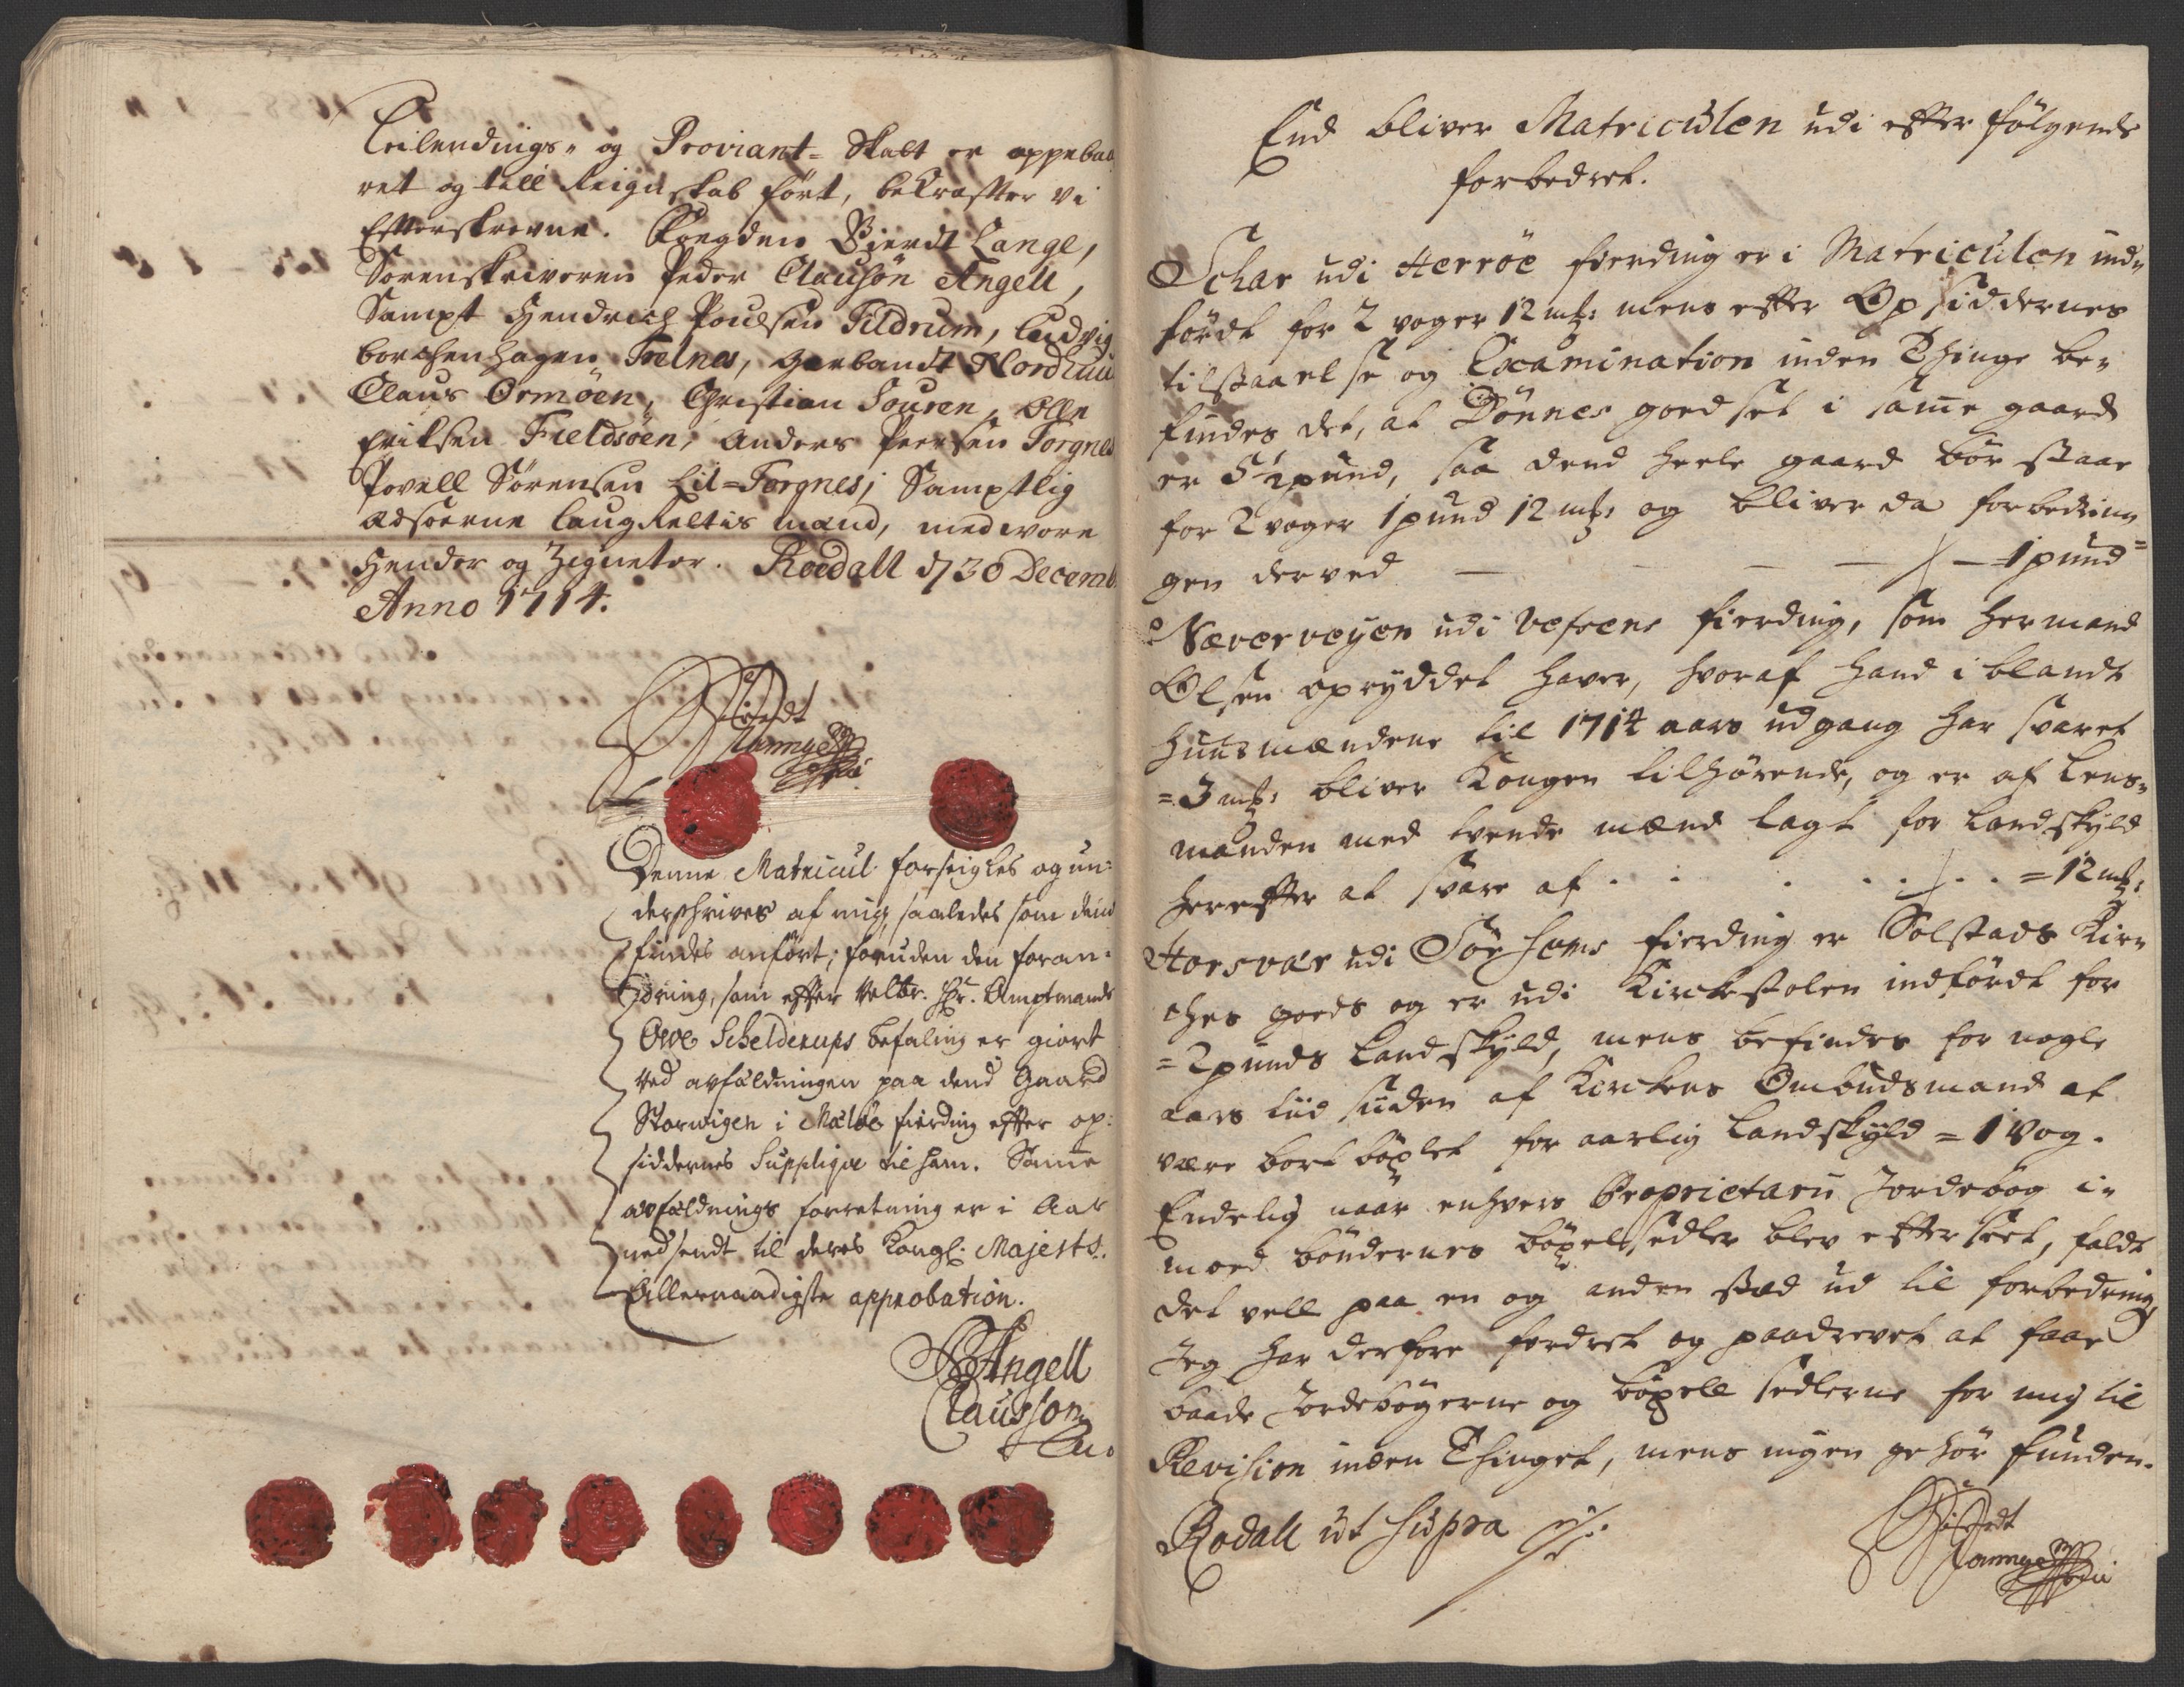 Leilendings- og Proviant-Skatt er oppebaa
ret og till Reignskab fört, bekrœffter vi
Effterskrevne. Foegden Sierdt Lange,
Sorenskriveren Peder Clausön Angell,
Sampt Hendrich Poulsen Tildrum, Ludvig
borchenhagen Trelnes, Garbandt Nordhuu
Claus Ormöen, Christian Souren, Olle
Eriksen Fieldsöen, Anders Peersen Torgnes
Povell Sörensen Lil-Torgnes; Samptlig
Edsorne laugRettis mænd, med vore
Hender og Zigneter. Roedall d 30 Decemb
Anno 1714.
Sierdt
Lannge
Denne Matricul forseigles og un-
derschrives af mig saaledes som dend
findes anfört; foruden den foran-
dring, som effter Velbr. Hr. Amptmands
Ove Schelderups befaling er giort
ved avfældningen paa dend Gaard
Storwigen i Mælöe fierding effter op-
siddernes Suppliqve til ham. Samme
avfældnings forretning er i Aar
nedsendt til deres Kongl: Majests.
Allernaadigste approbation.
PAngell
Clausson
End bliver Matriculen udi effter fölgende
forbedret.
Schar udi Herröe fierding er i Matriculen ind-
fördt for 2 voger 12 mk: mens effter Opsiddernes
tilstaaelse og Examination inden Thinge be-
findes det, at Dönnes goedset i samme gaard
er 5½ pund, saa dend heele gaard bör staae
for 2 voger 1 pund 12 mk: og bliver da forbedrin-
gen derved — — — — 1 pund
Næverveyen udi Vefsens fierding, som Hermand
Olsen opryddet haver, hvoraf hand i blandt
huusmændene til 1714 aars udgang har svaret
= 3 mk: bliver Kongen tilhörende, og er af Lens-
manden med tvende mænd lagt for Landskyld
hereffter at svare af . . . . . . = 12 mk:
Horsvær udi Sör fierding er Solstads Kir-
ches goeds og er udi Kirckestolen indfördt for
= 2 punds Landskyld, mens befindes for nogle
aars tiid siiden af Kirckens Ombudsmand at
være bort böxlet for aarlig Landskyld = 1 vog.
Endelig naar enhvers Proprietarii Jordebog i-
moed böndernes böxelsedler blev effterseet, faldt
det vell paa en og anden stæd ud til forbedring,
Jeg har derfore fordret og paadrevet at faae
baade Jordebögerne og böxell sedlerne for mig til
Revision inden Thinget, mens ingen gehör funden.
Rodall ut supra
Sierdt
Lannge